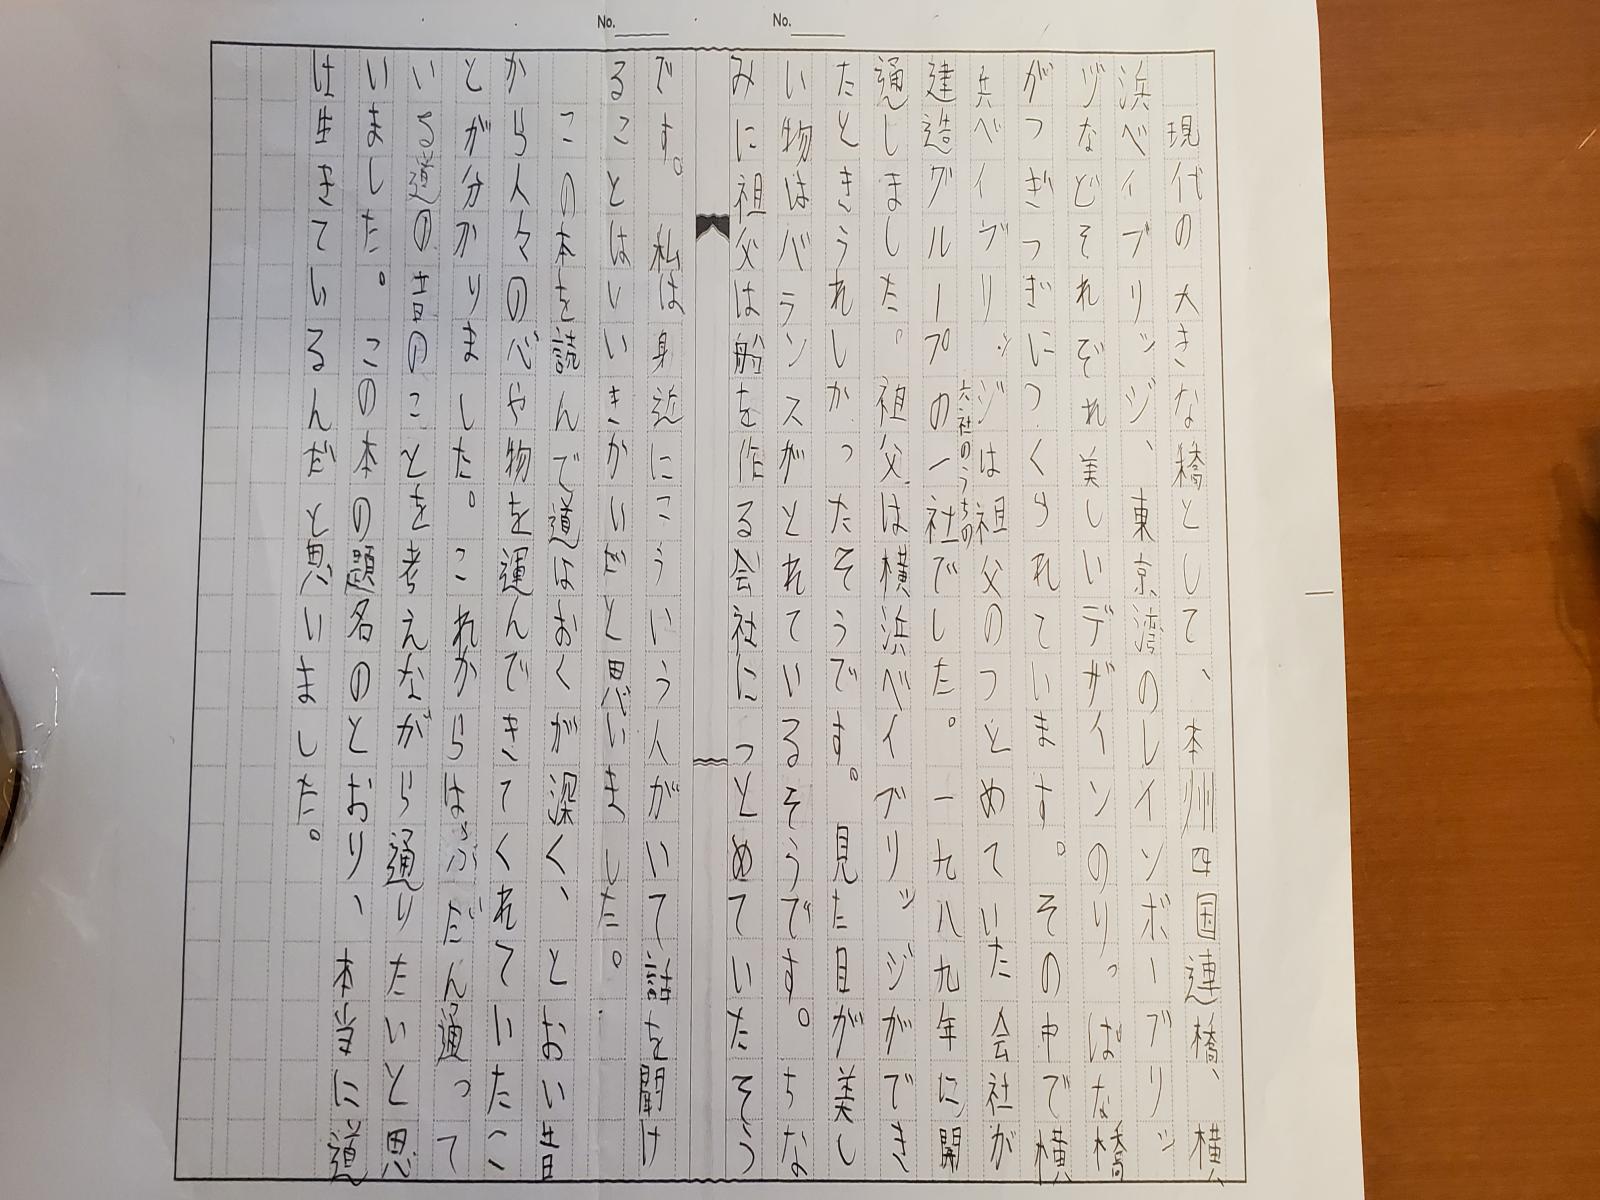 No.
No.
現代の大きな橋として、本州四国連橋、横
浜ベイブリッジ、東京湾のレインボーブリッ
ヅなどそれぞれ美しいデザインのりっぱな橋
がつぎつぎにつくられています。その中で横
浜ベイブリッジは祖父のつとめていた会社が
六社のうちの
建造グループの一社でした。一九八九年に開
通しました。祖父は横浜ベイブリッジができ
たときうれしかったそうです。見た目が美し
い物はバランスがとれているそうです。ちな
みに祖父は船を作る会社につとめていたそう
です。私は身近にこういう人がいて話を聞け
ることはいいきかいだと思いました。
この本を読んで道はおくが深く、とおい昔
から人々の心や物を運んできてくれていたこ
とが分かりました。これからはふだん通って
いる道の昔のことを考えながら通りたいと思
いました。この本の題名のとおり、本当に道
は生きているんだと思いました。